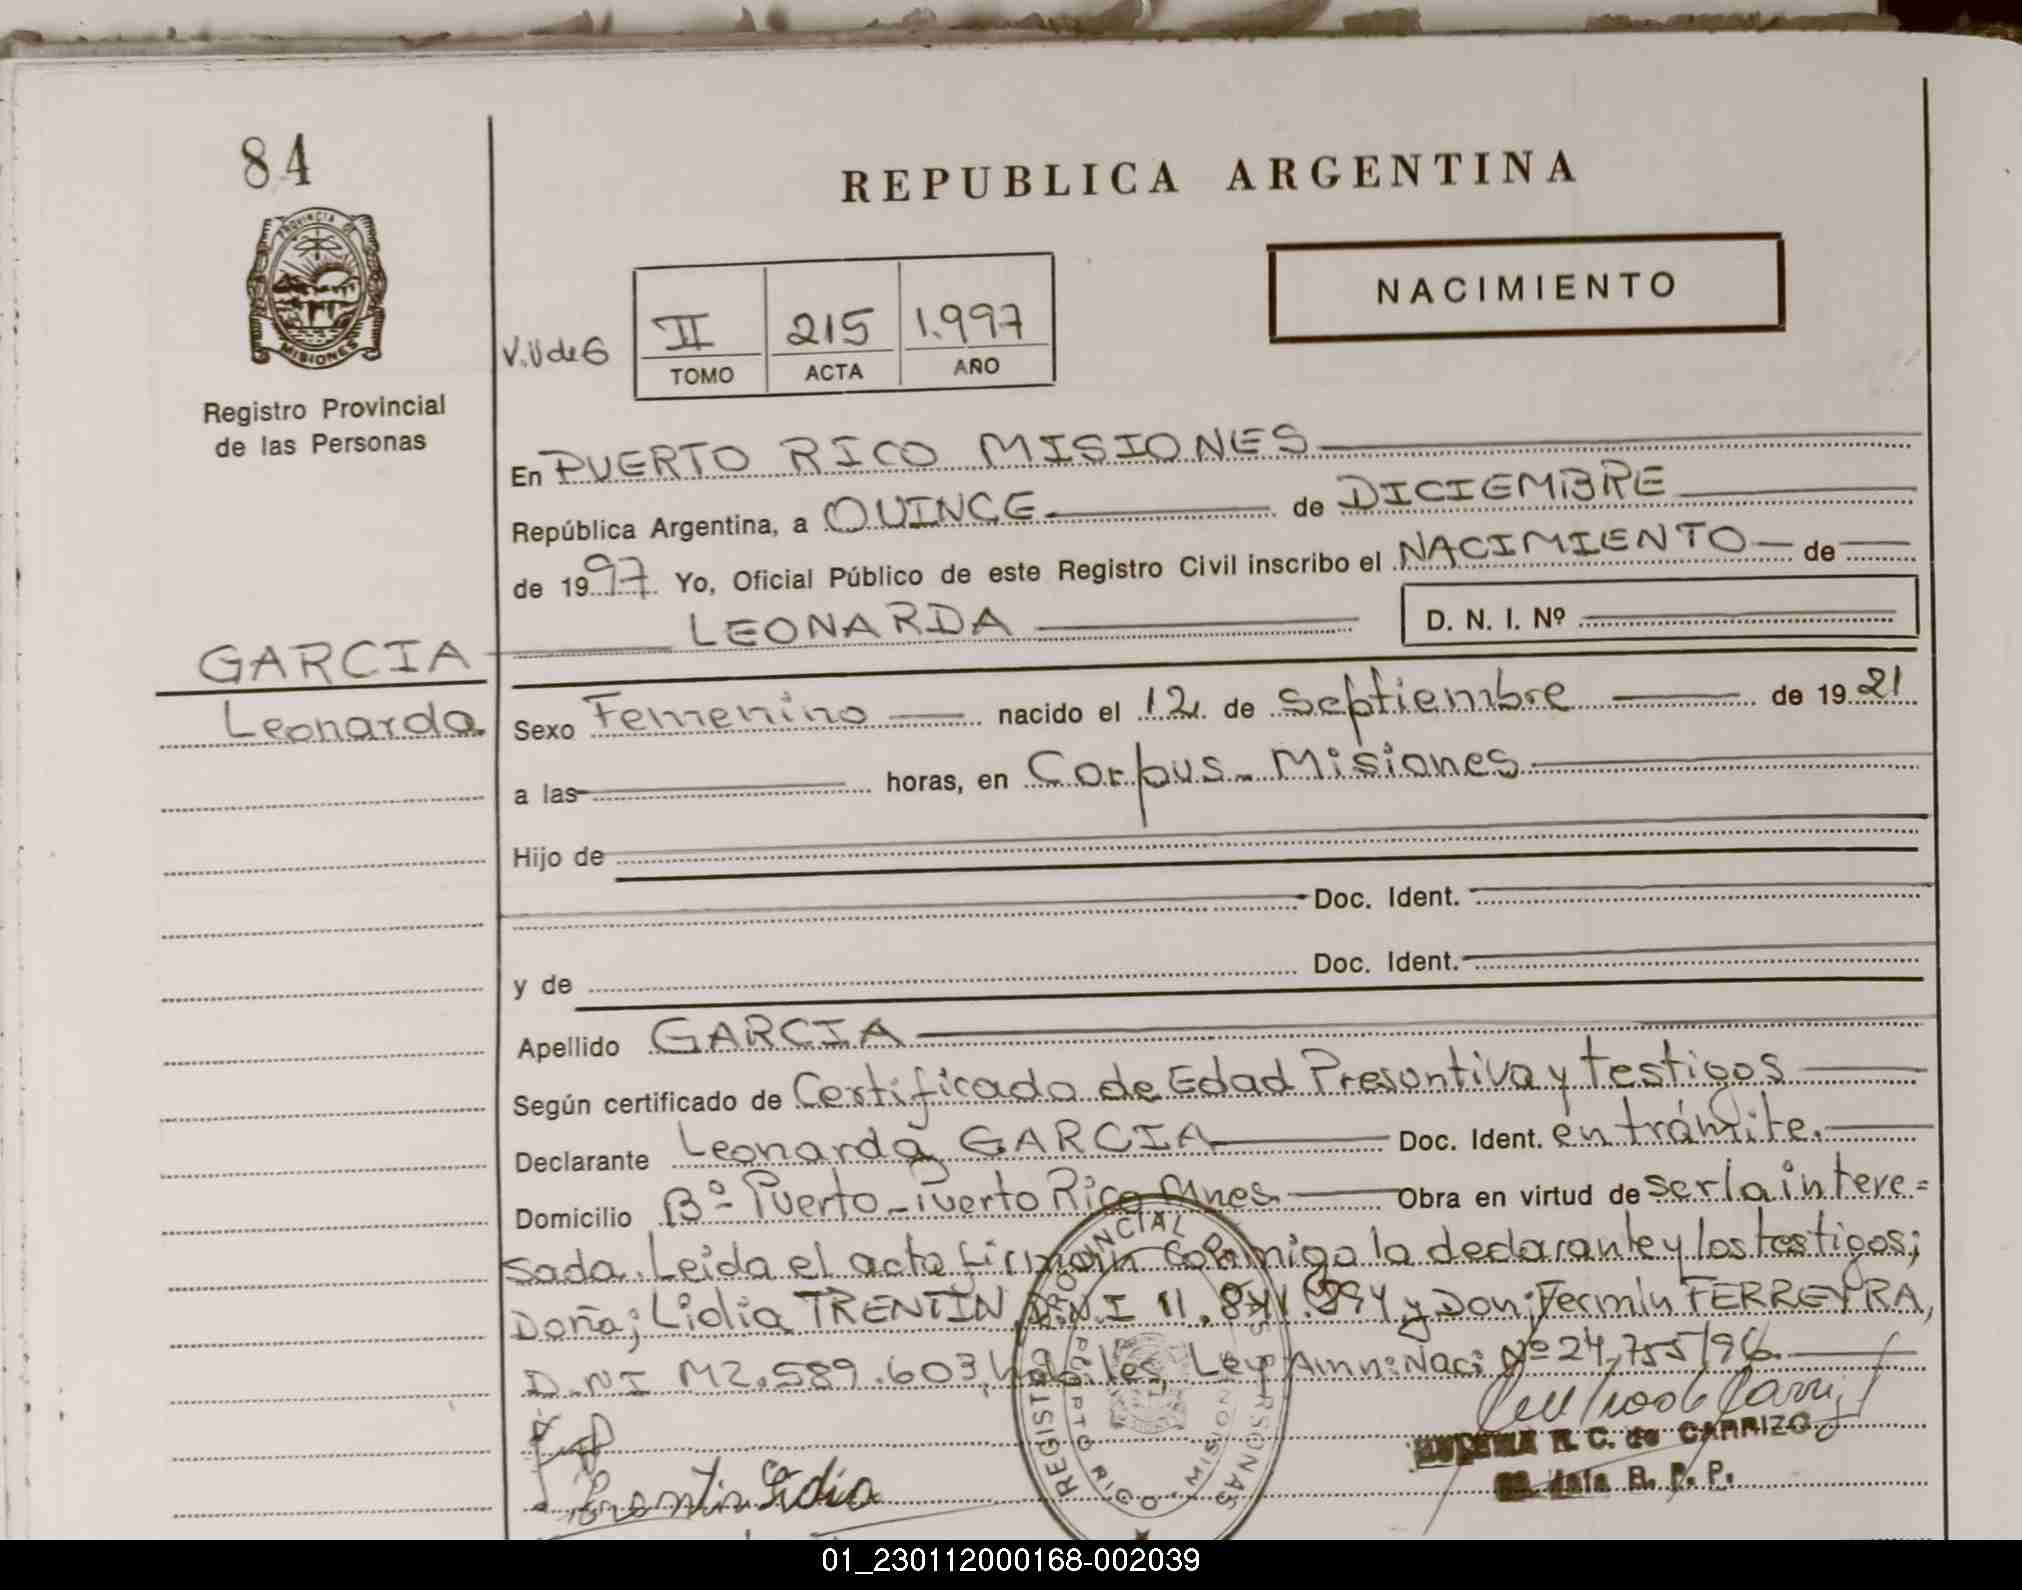 84
REPUBLICA ARGENTINA
PROVINCIA DE
MISIONES
NACIMIENTO
V.V de G
II 215 1.997
TOMO ACTA AÑO
Registro Provincial
de las Personas
En PUERTO RICO MISIONES
República Argentina, a QUINCE de DICIEMBRE
de 1997. Yo, Oficial Público de este Registro Civil inscribo el NACIMIENTO de
LEONARDA D. N. I. Nº
GARCIA
Leonarda
Sexo Femenino nacido el 12 de Septiembre de 1921
a las horas, en Corpus - Misiones
Hijo de
Doc. Ident.
y de Doc. Ident.
Apellido GARCIA
Según certificado de Certificado de Edad Presontiva y testigos
Declarante Leonarda GARCIA Doc. Ident. en trámite.
Domicilio Bº Puerto - Puerto Rico Mnes. Obra en virtud de ser la intere=
sada. Leida el acta firman conmigo la declarante y los testigos;
Doña; Lidia TRENTIN, D.N.I 11. y Don; Fermín FERREYRA,
D.N.I M2.589.603, habiles, Ley Amn: Nac: Nº 24.755/96.
REGISTRO PROVINCIAL DE LAS PERSONAS
PUERTO RICO MISIONES
Trentin Lidia
R. C. de CARRIZO
R. P. P.
01_230112000168-002039